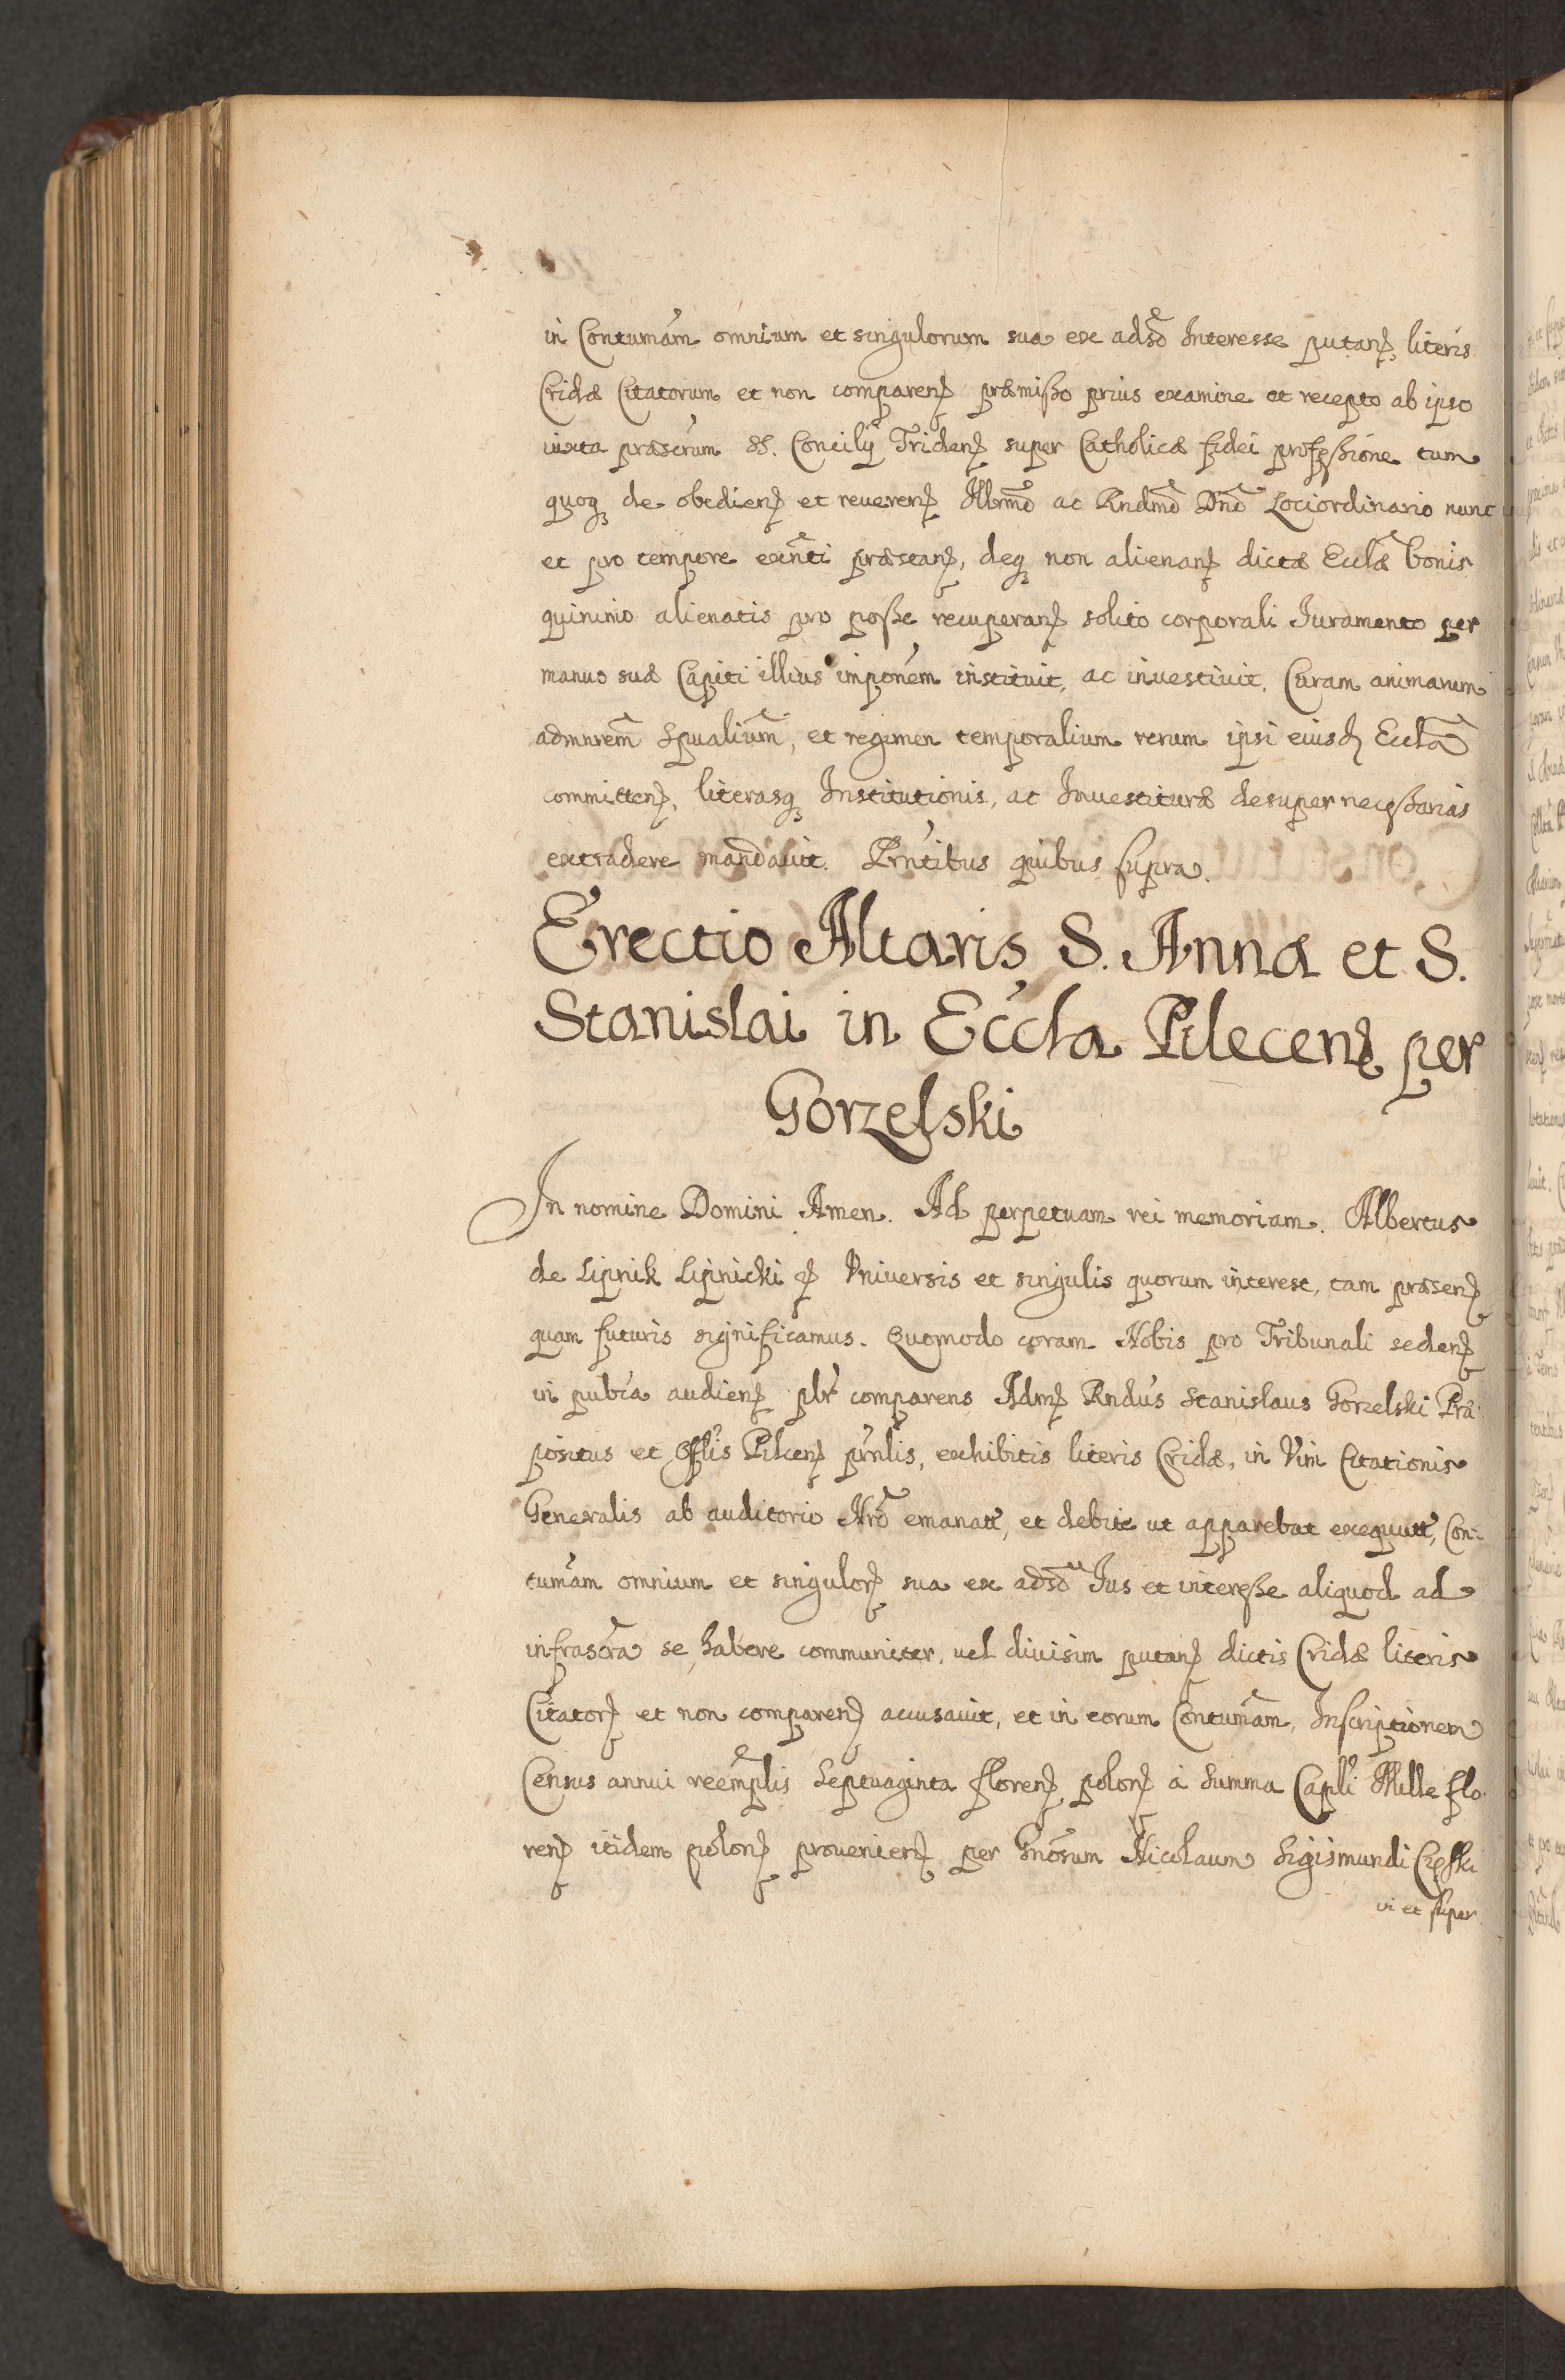 in Contumám omnium et singulorum sua ex adsõ Interesse putanꝫ literis
Cridæ Citatorum et non comparenꝫ præmißo prius examine et recepto ab ipso
iuxta præscrúm SS. Concilÿ Tridenꝫ super Catholicæ fidei profeßione tum
quoqꝫ de obedienꝫ et reuerenꝫ Illrmõ ac Rndmõ Dnõ Lociordinario nunc
et pro tempore exñti præstanꝫ, deqꝫ non alienanꝫ dictæ Ecclæ bonis
quinimo alienatis pro poße recuperanꝫ solito corporali Iuramento per
manus suæ Capiti illius imponém instituit, ac inuestiuit, Curam animarum
admnrem̃ Spualium̃, et regimen temporalium rerum ipsi eiusdꝫ Ecclæ
committenꝫ, literasqꝫ Institutionis, ac Inuestituræ desuper neceßarias
extradere mandauit. Prñtibus quibus supra.
Erectio Altaris S. Annæ et S.
Stanislai in Eccla Pilecenꝫ per
Gorzelski
In nomine Domini Amen. Ad perpetuam rei memoriam. Albertus
de Lipnik Lipnicki ꝫ Vniuersis et singulis quorum interest, tam præsenꝫ
quam futuris significamus. Quomodo coram Nobis pro Tribunali sedenꝫ
in publca audienꝫ plr̃ comparens Admꝫ Rndús Stanislaus Gorzelski Præ-
positus et Offlis Pilcenꝫ prnlis, exhibitis literis Cridæ, in Vim Citationis
Generalis ab auditorio Nrõ emanatt̃, et debite ut apparebat exequutt̃, Con-
tumám omnium et singulorꝫ sua ex adsõ Ius et intereße aliquod ad
infrascra se habere communiter, uel diuisim putanꝫ dictis Cridæ literis
Citatorꝫ et non comparenꝫ accusauit, et in eorum Contumám, Inscriptionem
Census annui reem̃plis Septuaginta florenꝫ polonꝫ à Summa Capli Mille flo-
renꝫ itidem polonꝫ prouenienꝫ per Gnõsum Nicolaum Sigismundi
ui et super